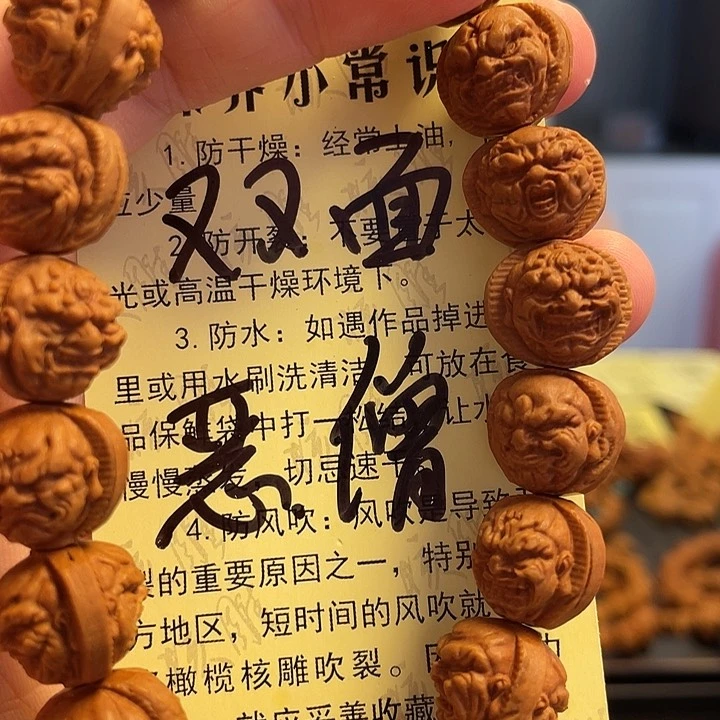 养小常识
1. 防干燥：经常上油，
位少量
2. 防开裂：不要
太
光或高温干燥环境下。
3. 防水：如遇作品掉进
里或用水刷洗清洁，可放在食
品保鲜袋中打一
让水
慢慢蒸发，切忌速干
4. 防风吹：风吹是导致
裂的重要原因之一，特别
方地区，短时间的风吹就
橄榄核雕吹裂。
妥善收藏
双面
恶僧